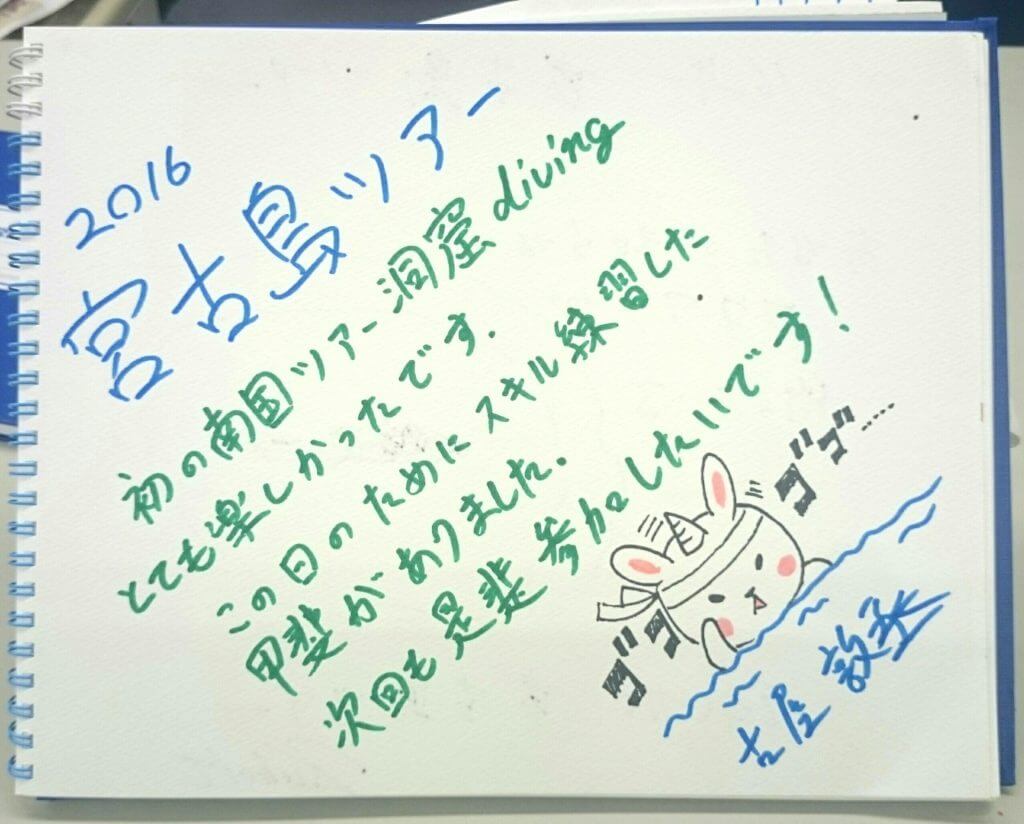 2016
宮古島ツアー
初の南国ツアー洞窟diving
とても楽しかったです.
この日のためにスキル練習した
甲斐がありました.
次回も是非参加したいです!
ゴゴ……
ゴゴ
古屋